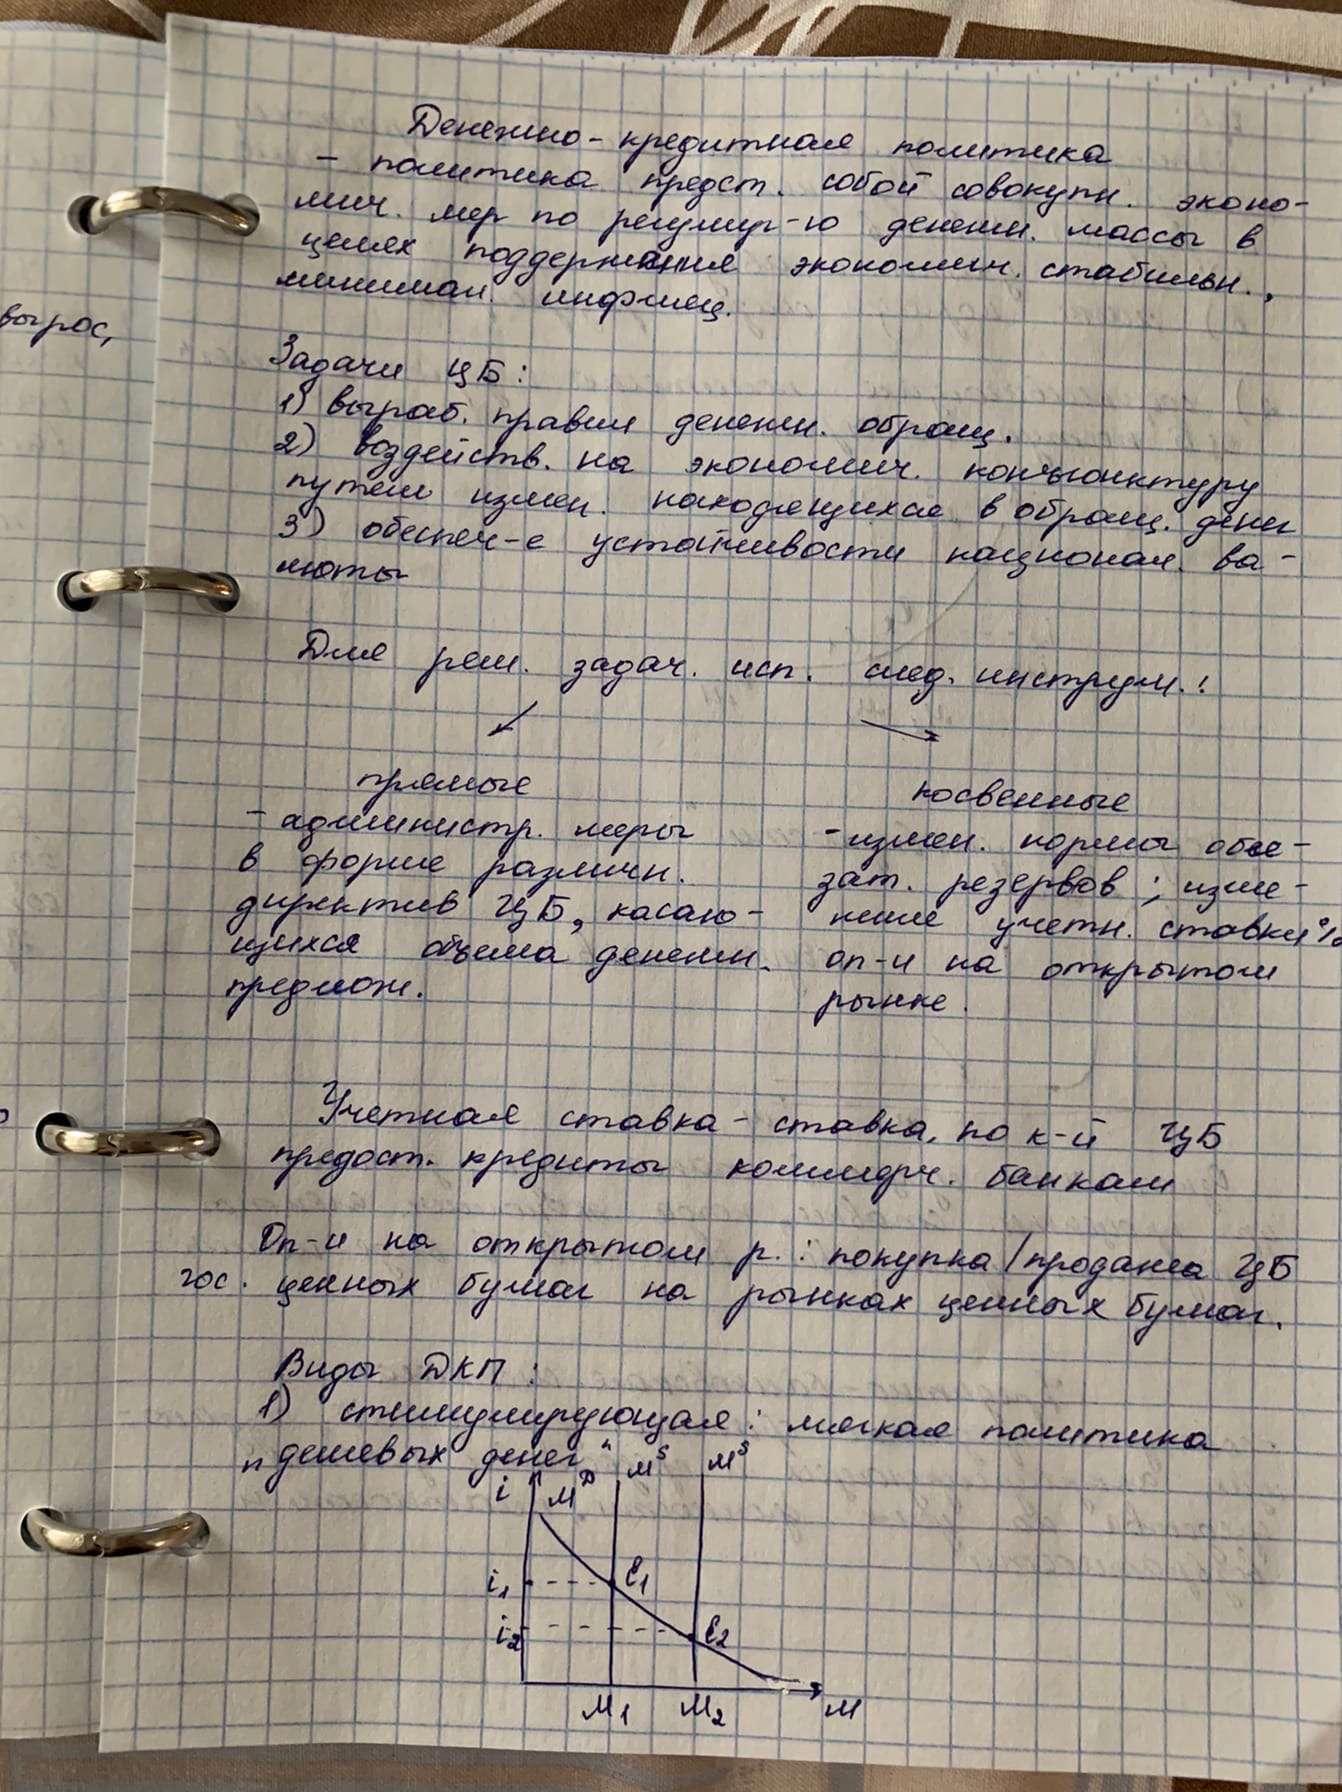 вырос,
Денежно-кредитная политика
- политика предст. собой совокупн. эконо-
мич. мер по регулир-ю денежн. массы в
целях поддержания экономич. стабильн.,
минимал. инфляц.
Задачи ЦБ:
1) выраб. правил денежн. обращ.
2) воздейств. на экономич. конъюнктуру
путем измен. находящихся в обращ. денег
3) обеспеч-е устойчивости национал. ва-
люты
Для реш. задач. исп. след. инструм.:
прямые
- администр. меры
в форме различн.
директив ЦБ, касаю-
щихся объема денежн.
предлож.
косвенные
- измен. нормы обя-
зат. резервов; изме-
нение учетн. ставки %
оп-и на открытом
рынке.
Учетная ставка - ставка, по к-й ЦБ
предост. кредиты коммерч. банкам
Оп-и на открытом р.: покупка/продажа ЦБ
гос. ценных бумаг на рынках ценных бумаг.
Виды ДКП:
1) стимулирующая: мягкая политика
"дешевых денег"
i M^D M^S M^S
i₁ E₁
i₂ E₂
M₁ M₂ M